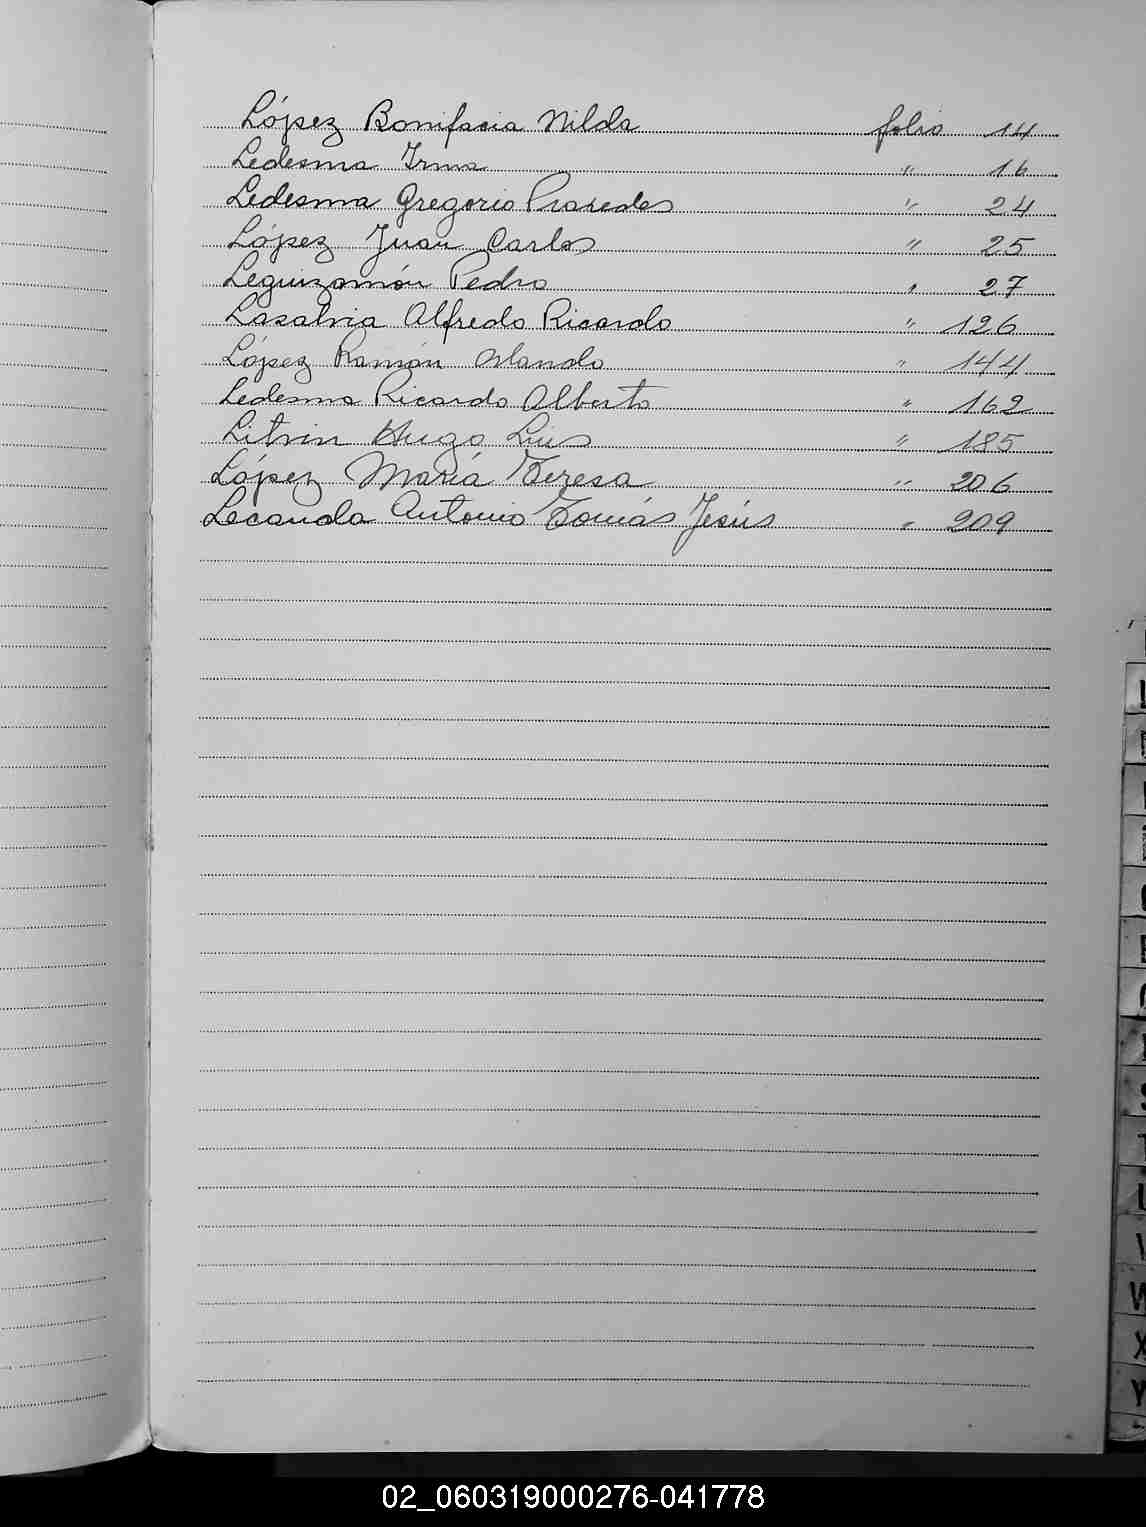 López Bonifacia Nilda folio 14
Ledesma Irma " 16
Ledesma Gregorio Praxedes " 24
López Juan Carlos " 25
Leguizamón Pedro " 27
Lasalvia Alfredo Ricardo " 126
López Ramón Orlando " 144
Ledesma Ricardo Alberto " 162
Litvin Hugo Luis " 185
López María Teresa " 206
Lecanda Antonio Tomás Jesús " 209
W
X
Y
02_060319000276-041778